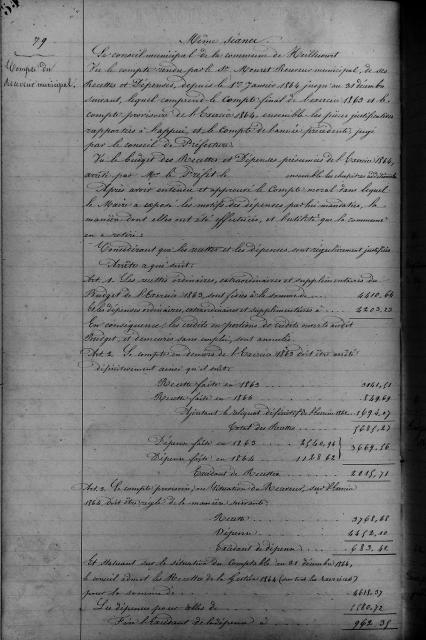 79
Même séance
Compte du
Receveur municipal.
Le conseil municipal de la commune de
Vu le compte rendu par le Sr. Receveur municipal, de ses
Recettes et Dépenses, depuis le 1er Janvier 1864 jusqu'au 31 décembre
suivant, lequel comprend le Compte final de l'exercice 1863 et le
compte provisoire de l'Exercice 1864, ensemble les pièces justificatives
rapportées à l'appui, et le Compte de l'année précédente jugé
par le conseil de Préfecture.
Vu le budget des Recettes et Dépenses présumées de l'Exercice 1864,
arrêté par Mr. le Préfet le ensemble les chapitres additionnels
Après avoir entendu et approuvé le Compte moral dans lequel
le Maire a exposé les motifs des dépenses par lui mandatées, la
manière dont elles ont été effectuées, et l'utilité que la commune
en a retiré;
Considérant que les recettes et les dépenses sont régulièrement justifiées
Arrête ce qui suit:
Art. 1. Les recettes ordinaires, extraordinaires et supplémentaires du
Budget de l'Exercice 1863, sont fixées à la somme de 4410,64
Et les dépenses ordinaires, extraordinaires et supplémentaires à 2203,23
En conséquence, les crédits ou portions de crédits ouverts audit
Budget, et demeurés sans emploi, sont annulés.
Art. 2. Le compte en deniers de l'Exercice 1863 doit être arrêté
définitivement ainsi qu'il suit:
Recette faite en 1863 3141,51
Recette faite en 1864 849,69
Ajoutant le reliquat définitif de l'exercice 1862 1694,07
Total des Recettes 5685,27
Dépense faite en 1863 2540,94
Dépense faite en 1864 1128,62
3669,56
Excédant de Recettes 2015,71
Art. 3. Le compte provisoire, ou Situation du Receveur, sur l'exercice
1864, doit être réglé de la manière suivante:
Recette 3768,68
Dépense 4452,10
Excédant de dépense 683,42
Et statuant sur la situation du Comptable au 31 décembre 1864,
le conseil admet les Recettes de la Gestion 1864 (sur tous les exercices)
pour la somme de 4618,37
Les dépenses pour celle de 5580,72
Fixe l'Excédant de la dépense à 962,35